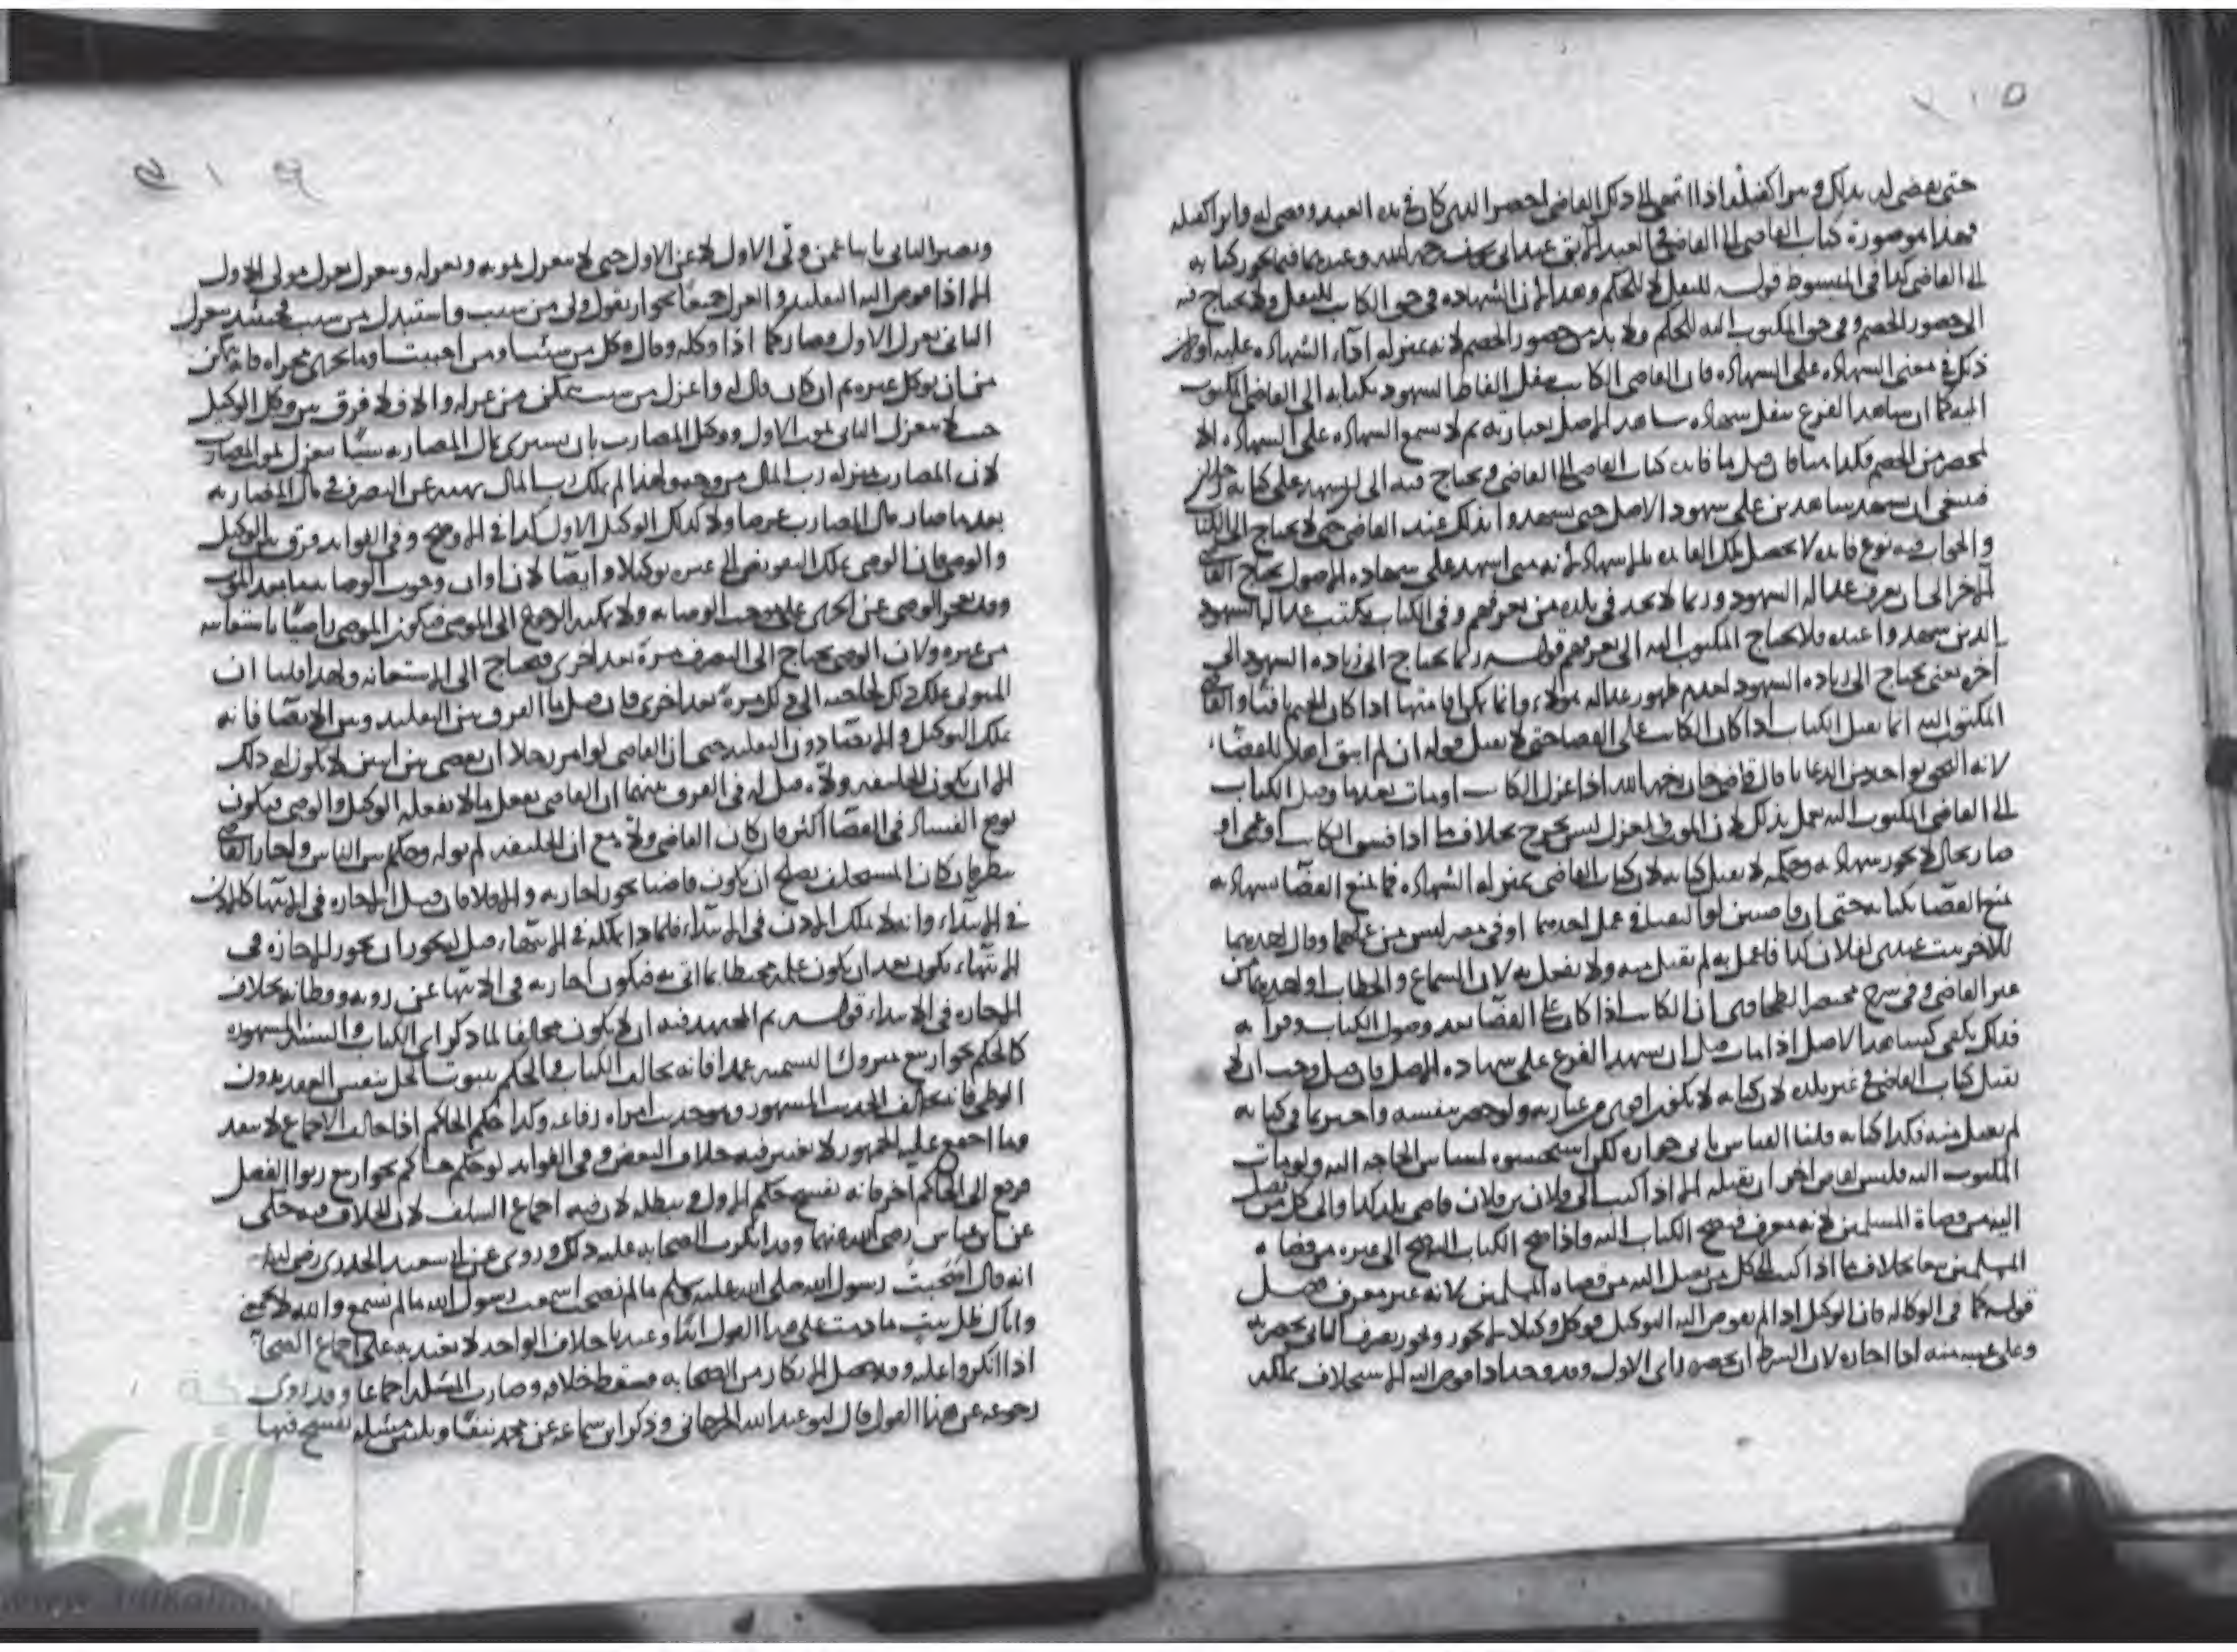 حتى يقضى له بذلك ويبرا كفيله فاذا انتهى الى ذلك القاضى احضر الذى كان فى يده العبد وقضى له وابرا كفيله
فهذا هو صورة كتاب القاضى الى القاضى فى العبد الآبق عند ابى يوسف رحمه الله
الى القاضى كذا فى المبسوط قوله للنقل لا للحكم وهذا لان الشهادة فى حق الكاتب للنقل ولا يحتاج فيه
الى حضور الخصم وفى حق المكتوب اليه للحكم ولا بد من حضور الخصم لانه بمنزلة اداء الشهادة عليه
ذلك فى معنى الشهادة على الشهادة فان القاضى الكاتب ينقل الفاظ الشهود بكتابه الى القاضى المكتوب
اليه كما ان شاهد الفرع ينقل شهادة شاهد الاصل بعبارته ثم لا يسمع الشهادة على الشهادة الا
بمحضر من الخصم فكذا هنا فان قيل ما فائدة كتاب القاضى الى القاضى ويحتاج فيه الى ان يشهد على كتابه
فينبغى ان يشهد شاهدين على شهود الاصل حتى يشهدوا بذلك عند القاضى حتى لا يحتاج الى الكتاب
والجواب فيه نوع فائدة لا يحصل تلك الفائدة بالاشهاد لانه متى اشهد على شهادة الاصول يحتاج القاضى
الآخر الى ان يعرف عدالة الشهود وربما لا يجد فى بلده من يعرفهم وفى الكتاب يكتب عدالة الشهود
الذين شهدوا عنده فلا يحتاج المكتوب اليه الى تعرفهم قوله ربما يحتاج الى زيادة الشهود الى
آخره يعنى يحتاج الى زيادة الشهود لعدم ظهور عدالة هؤلاء وانما يمكن اقامتها اذا كان الختم باقيا والقاضى
المكتوب اليه انما يقبل الكتاب اذا كان الكاتب على القضا حتى لا يقبل قوله ان لم ابق اهلا للقضاء
لانه التحق بواحد من الرعايا قال قاضى خان رحمه الله اذا عزل الكاتب او مات بعد ما وصل الكتاب
الى القاضى المكتوب اليه يعمل بذلك لان الموت والعزل ليس بجرح بخلاف ما اذا فسق الكاتب او عمى او
صار بحال لا يجوز شهادته وحكمه لا يقبل كتابه لان كتاب القاضى بمنزلة الشهادة فما يمنع القضا بشهادته
يمنع القضا بكتابه حتى ان قاضيين لو التقيا فى عمل احدهما او فى مصر ليس من عملهما وقال احدهما
للآخر ثبت عندى لفلان كذا فاعمل به لم يقبل منه ولا يفعل به لان السماع والخطاب او احدهما من
غير القاضى وفى شرح مختصر الطحاوى ان الكاتب اذا كان على القضا بعد وصول الكتاب وقراءته
فذلك يكفى كشاهد الاصل اذا مات قبل ان يشهد الفرع على شهادة الاصل فان قيل وجب ان لا
يقبل كتاب القاضى فى غير بلده لان كتابه لا يكون اقوى من عبارته ولو حضر بنفسه واخبر بما فى كتابه
لم يقبل منه فكذا كتابه قلنا القياس يابى جوازه لكن استحسنوه لمساس الحاجة اليه ولو مات
المكتوب اليه فليس لقاض آخر ان يقبله الا اذا كتب الى فلان بن فلان قاضى بلد كذا والى كل من يصل
اليه من قضاة المسلمين لانه معرف فيصح الكتاب اليه واذا صح الكتاب اليه صح الى غيره من قضاة
المسلمين تبعا بخلاف ما اذا كتب الى كل من يصل اليه من قضاة المسلمين لانه غير معرف فصل
قوله كما فى الوكالة فان الوكيل اذا لم يفوض اليه التوكيل فوكل وكيلا لا يجوز ويجوز تصرف الثانى بحضرته
وعلى غيبته منه اذا اجازه لان الشرط ان يحضره راى الاول وقد وجد اذا فوض اليه الاستخلاف يملكه
ويصير الثانى نائبا عمن ولى الاول لا عن الاول حتى لا ينعزل بموته وبعزله وينعزل بعزل مولى الاول
الا اذا فوض اليه التقليد والعزل جميعا نحو ان يقول ول من شئت واستبدل من شئت فحينئذ ينعزل
الثانى بعزل الاول وصار كما اذا وكله وقال وكل من شئت او من احببت او ما يجرى مجراه فانه يمكن
من ان يوكل غيره ثم ان كان قال له واعزل من شئت يمكن من عزله والا فلا فرق بين وكيل الوكيل
حيث لا ينعزل الثانى بموت الاول ووكيل المضارب بان يشترى بمال المضاربة شيئا ينعزل بموت المضارب
لان المضارب بمنزلة رب المال من وجه ولهذا لم يملك رب المال نهيه عن التصرف فى مال المضاربة
بعد ما صار مال المضارب عرضا ولا كذلك الوكيل الاول كذا فى الاوضح وفى الفوايد فرق بين الوكيل
والوصى فان الوصى يملك التفويض الى غيره توكيلا وايصا لان اوان وجوب الوصاية ما بعد الموت
وقد يعجز الوصى عن الجرى على موجب الوصاية ولا يمكنه الرجوع الى الموصى فيكون الموصى راضيا باستعانته
من غيره ولان الوصى يحتاج الى التصرف مرة بعد اخرى فيحتاج الى الاستعانة ولهذا قلنا ان
المتولى يملك ذلك للحاجة الى ذلك مرة بعد اخرى فان قيل ما الفرق بين التقليد وبين الايصا فانه
يملك التوكيل والايصا دون التقليد حتى ان القاضى لو امر رجلا ان يقضى بين اثنين لا يكون له ذلك
الا ان يكون الخليفة ولاه قيل له فى الفرق بينهما ان القاضى يفعل ما لا يفعله الوكيل والوصى فيكون
توقع الفساد فى القضا اكثر فان كان القاضى ولاه مع ان الخليفة لم يوله وحكم بين الناس واجاز القاضى
ينظر فان كان المستخلف يصلح ان يكون قاضيا يجوز اجازته والا فلا فان قيل الاجازة فى الانتها كالاذن
فى الابتداء وانه لا يملك الاذن فى الابتداء فلماذا يملكه فى الانتهاء قيل له يجوز ان يجوز الاجازة فى
الانتهاء يكون بعد ان يكون علمه محيطا بما اتى به فيكون اجازته فى الانتها عن روية وفطانة بخلاف
الاجازة فى الابتداء قوله ثم المجتهد فيه ان لا يكون مخالفا لما ذكر اى الكتاب والسنة المشهورة
كالحكم بجواز بيع متروك التسمية عمدا فانه يخالف الكتاب والحكم بثبوت الحل بنفس العقد بدون
الوطى فانه يخالف الحديث المشهور وهو حديث امراة رفاعة وكذا حكم الحاكم اذا خالف الاجماع لا ينفذ
وما اجمع عليه الجمهور لا يعتبر فيه خلاف البعض وفى الفوايد لو حكم حاكم بجواز بيع ربوا الفضل
فرفع الى الحاكم آخر فانه يفسخ حكم الاول ويبطله لان فيه اجماع السلف لان الخلاف فيه حكى
عن ابن عباس رضى الله عنهما وقد انكرت الصحابة عليه ذلك وروى عن ابى سعيد الخدرى رضى الله عنه
انه قال اصحبت رسول الله صلى الله عليه وسلم ما لم نصحب اسمعت رسول الله ما لم نسمع والله لا يجمعنى
واياك ظل بيت ما دمت على هذا القول ايضا وعندنا خلاف الواحد لا يعتد به على اجماع الصحابة
اذا انكروا عليه وقد حصل الانكار من الصحابة فسقط خلافه وصارت المسئلة اجماعا وقد روى
رجوعه عن هذا القول قال ابو عبد الله الجرجانى وذكر ابن سماعة عن محمد نيفا وثلثين مسئلة يفسخ فيها
الألوكة